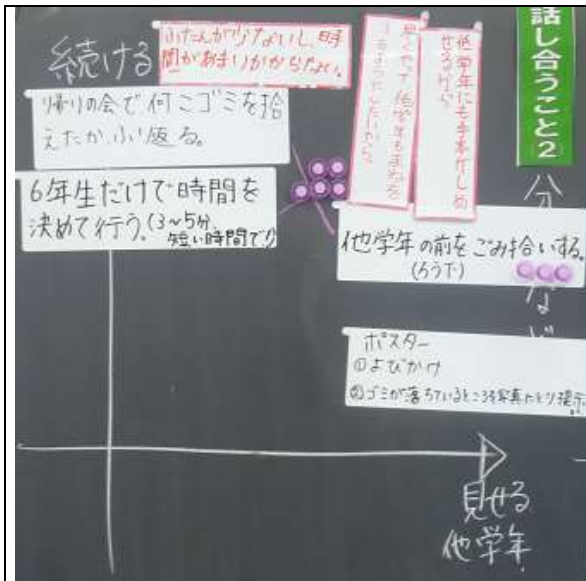 話し合うこと(2)
続ける
ふたんが少ないし、時
間があまりかからない。
他学年にも手本がしめ
せるから
帰りの会で何こゴミを拾
えたかふり返る。
6年生だけで時間を
決めて行う。(3~5分
短い時間で!)
他学年の前をごみ拾いする。
(ろう下)
ポスター
①よびかけ
②ゴミが落ちているところを写真にとり提示
見せる
他学年